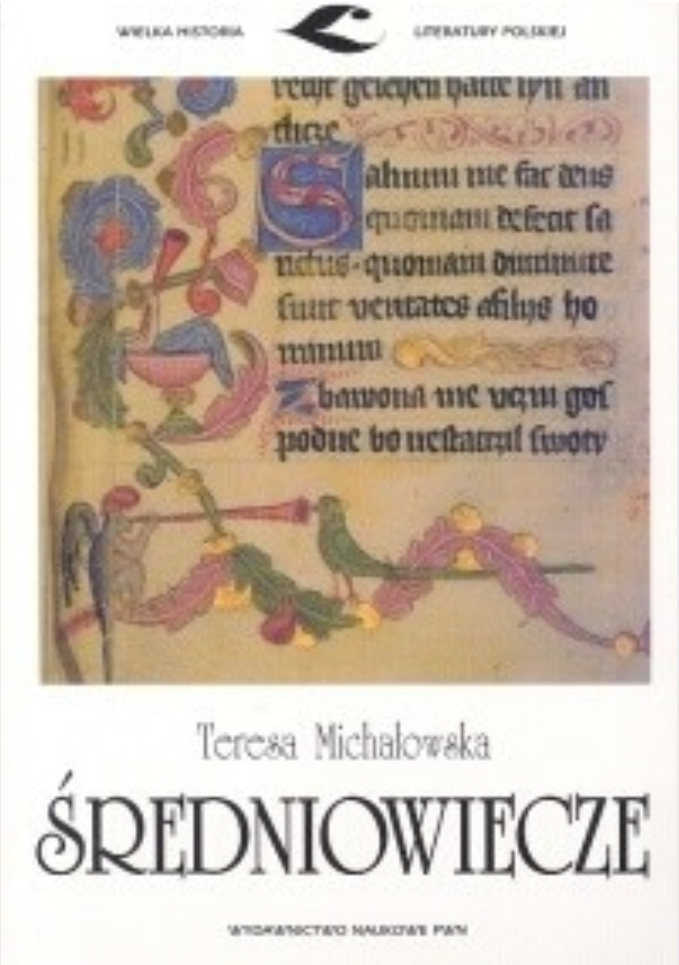 WIELKA HISTORIA LITERATURY POLSKIEJ
Saluum me fac deus
quoniam defecit sa
nctus·quoniam diminute
sunt veritates afilijs ho
minum
Zbawona me uczin gos
podne bo nestatczil swoty
Teresa Michałowska
ŚREDNIOWIECZE
WYDAWNICTWO NAUKOWE PWN